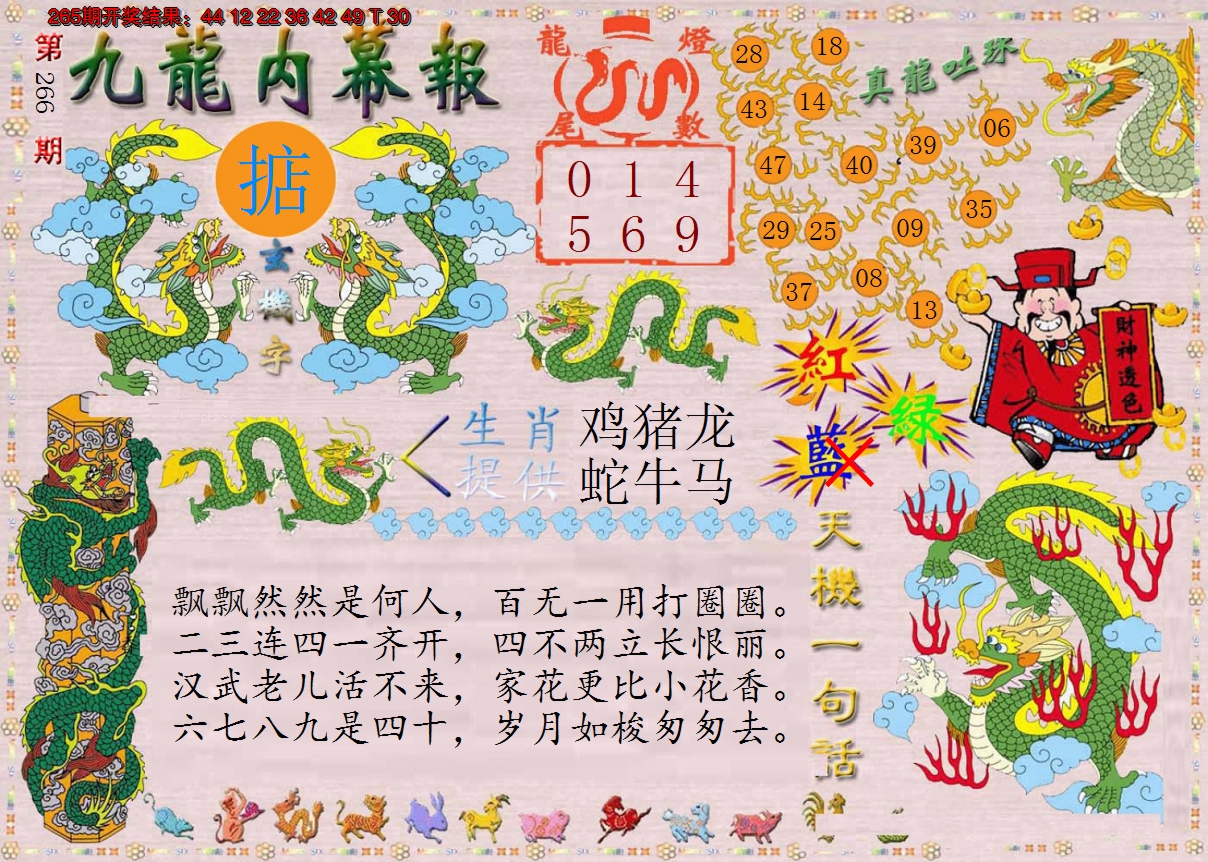 265期开奖结果：44 12 22 36 42 49 T 30
第266期
九龍内幕報
掂
玄機字
龍燈
尾數
0 1 4
5 6 9
真龍吐珠
28 18
43 14
39 06
47 40
35
29 25 09
37 08
13
財神透色
紅
綠
藍
生肖 鸡猪龙
提供 蛇牛马
天機一句話
飘飘然然是何人，百无一用打圈圈。
二三连四一齐开，四不两立长恨丽。
汉武老儿活不来，家花更比小花香。
六七八九是四十，岁月如梭匆匆去。